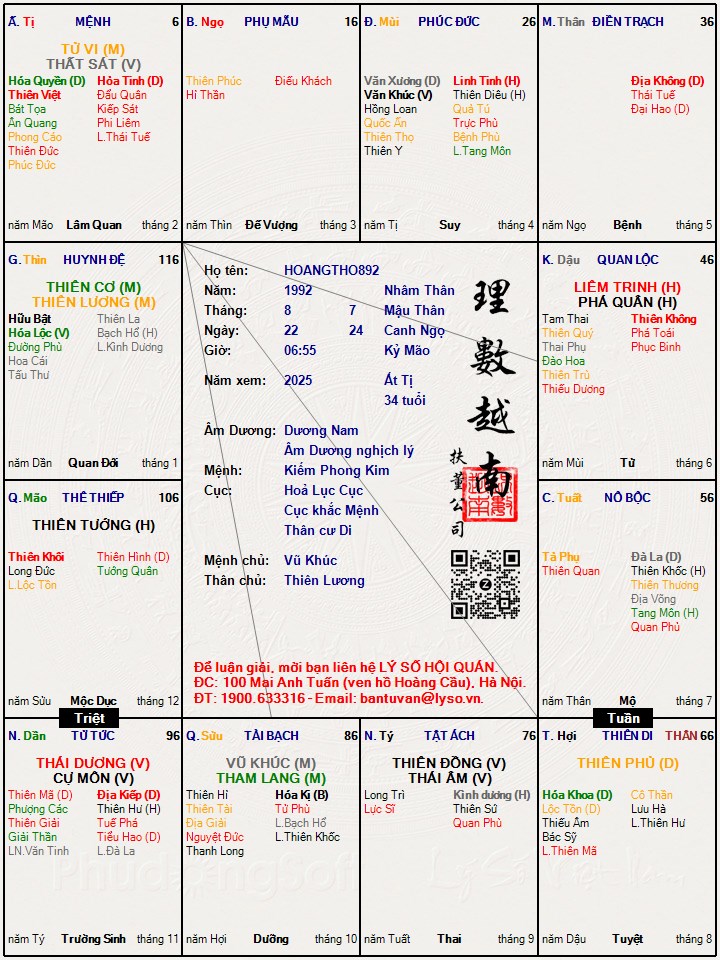 Ấ. Tị MỆNH 6
TỬ VI (M)
THẤT SÁT (V)
Hóa Quyền (D) Hỏa Tinh (D)
Thiên Việt Đẩu Quân
Bát Tọa Kiếp Sát
Ân Quang Phi Liêm
Phong Cáo L.Thái Tuế
Thiên Đức
Phúc Đức
năm Mão Lâm Quan tháng 2
B. Ngọ PHỤ MẪU 16
Thiên Phúc Điếu Khách
Hỉ Thần
năm Thìn Đế Vượng tháng 3
Đ. Mùi PHÚC ĐỨC 26
Văn Xương (D) Linh Tinh (H)
Văn Khúc (V) Thiên Diêu (H)
Hồng Loan Quả Tú
Quốc Ấn Trực Phù
Thiên Thọ Bệnh Phù
Thiên Y L.Tang Môn
năm Tị Suy tháng 4
M. Thân ĐIỀN TRẠCH 36
Địa Không (D)
Thái Tuế
Đại Hao (D)
năm Ngọ Bệnh tháng 5
G. Thìn HUYNH ĐỆ 116
THIÊN CƠ (M)
THIÊN LƯƠNG (M)
Hữu Bật Thiên La
Hóa Lộc (V) Bạch Hổ (H)
Đường Phù L.Kình Dương
Hoa Cái
Tấu Thư
năm Dần Quan Đới tháng 1
Họ tên: HOANGTHO892
Năm: 1992 Nhâm Thân
Tháng: 8 7 Mậu Thân
Ngày: 22 24 Canh Ngọ
Giờ: 06:55 Kỷ Mão
Năm xem: 2025 Ất Tị
34 tuổi
Âm Dương: Dương Nam
Âm Dương nghịch lý
Mệnh: Kiếm Phong Kim
Cục: Hoả Lục Cục
Cục khắc Mệnh
Thân cư Di
Mệnh chủ: Vũ Khúc
Thân chủ: Thiên Lương
理數越南
扶董公司
Để luận giải, mời bạn liên hệ LÝ SỐ HỘI QUÁN.
ĐC: 100 Mai Anh Tuấn (ven hồ Hoàng Cầu), Hà Nội.
ĐT: 1900.633316 - Email: bantuvan@lyso.vn.
K. Dậu QUAN LỘC 46
LIÊM TRINH (H)
PHÁ QUÂN (H)
Tam Thai Thiên Không
Thiên Quý Phá Toái
Thai Phụ Phục Binh
Đào Hoa
Thiên Trù
Thiếu Dương
năm Mùi Tử tháng 6
Q. Mão THÊ THIẾP 106
THIÊN TƯỚNG (H)
Thiên Khôi Thiên Hình (D)
Long Đức Tướng Quân
L.Lộc Tồn
năm Sửu Mộc Dục tháng 12
C. Tuất NÔ BỘC 56
Tả Phụ Đà La (D)
Thiên Quan Thiên Khốc (H)
Thiên Thương
Địa Võng
Tang Môn (H)
Quan Phủ
năm Thân Mộ tháng 7
Triệt
Tuần
N. Dần TỬ TỨC 96
THÁI DƯƠNG (V)
CỰ MÔN (V)
Thiên Mã (D) Địa Kiếp (D)
Phượng Các Thiên Hư (H)
Thiên Giải Tuế Phá
Giải Thần Tiểu Hao (D)
LN.Văn Tinh L.Đà La
năm Tý Trường Sinh tháng 11
Q. Sửu TÀI BẠCH 86
VŨ KHÚC (M)
THAM LANG (M)
Thiên Hỉ Hóa Kị (B)
Thiên Tài Tử Phù
Địa Giải L.Bạch Hổ
Nguyệt Đức L.Thiên Khốc
Thanh Long
năm Hợi Dưỡng tháng 10
N. Tý TẬT ÁCH 76
THIÊN ĐỒNG (V)
THÁI ÂM (V)
Long Trì Kình dương (H)
Lực Sĩ Thiên Sứ
Quan Phù
năm Tuất Thai tháng 9
T. Hợi THIÊN DI THÂN 66
THIÊN PHỦ (D)
Hóa Khoa (D) Cô Thần
Lộc Tồn (D) Lưu Hà
Thiếu Âm L.Thiên Hư
Bác Sỹ
L.Thiên Mã
năm Dậu Tuyệt tháng 8